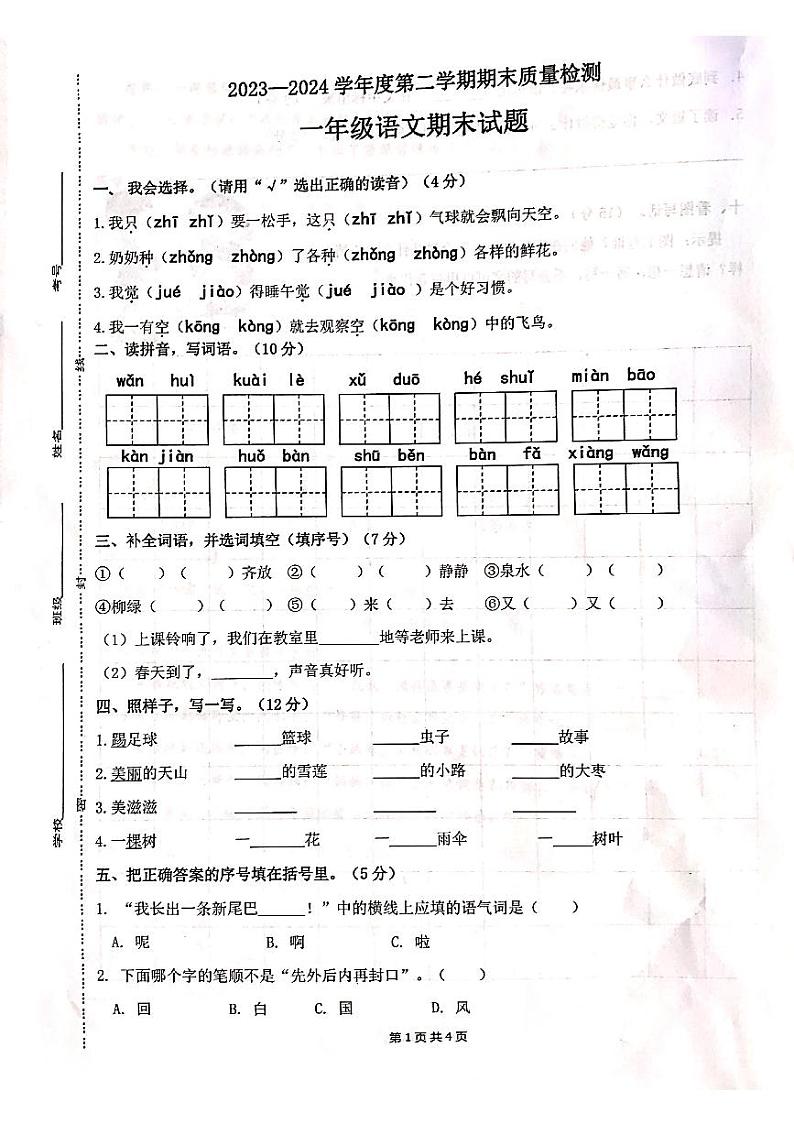 2023—2024 学年度第二学期期末质量检测
一年级语文期末试题
一、 我会选择。（请用“√”选出正确的读音）（4 分）
1.我只（zhī zhǐ）要一松手，这只（zhī zhǐ）气球就会飘向天空。
2.奶奶种（zhǒng zhòng）了各种（zhǒng zhòng）各样的鲜花。
3.我觉（jué jiào）得睡午觉（jué jiào ）是个好习惯。
4.我一有空（kōng kòng）就去观察空（kōng kòng）中的飞鸟。
二、读拼音，写词语。（10 分）
wǎn huì kuài lè xǔ duō hé shuǐ miàn bāo
kàn jiàn huǒ bàn shū běn bàn fǎ xiàng wǎng
三、补全词语，并选词填空（填序号）（7 分）
①（ ）（ ）齐放 ②（ ）（ ）静静 ③泉水（ ）（ ）
④柳绿（ ）（ ） ⑤（ ）来（ ）去 ⑥又（ ）又（ ）
（1）上课铃响了，我们在教室里_______地等老师来上课。
（2）春天到了，_______，声音真好听。
四、照样子，写一写。（12 分）
1.踢足球 ______篮球 ______虫子 ______故事
2.美丽的天山 ______的雪莲 ______的小路 ______的大枣
3.美滋滋 ________ ________ ________
4.一棵树 一______花 一_____雨伞 一_____树叶
五、把正确答案的序号填在括号里。（5 分）
1. “我长出一条新尾巴______！”中的横线上应填的语气词是（ ）
A. 呢 B. 啊 C. 啦
2. 下面哪个字的笔顺不是“先外后内再封口”。（ ）
A. 回 B. 白 C. 国 D. 风
第 1 页 共 4 页
考号
姓名
班级
学校
线
封
密